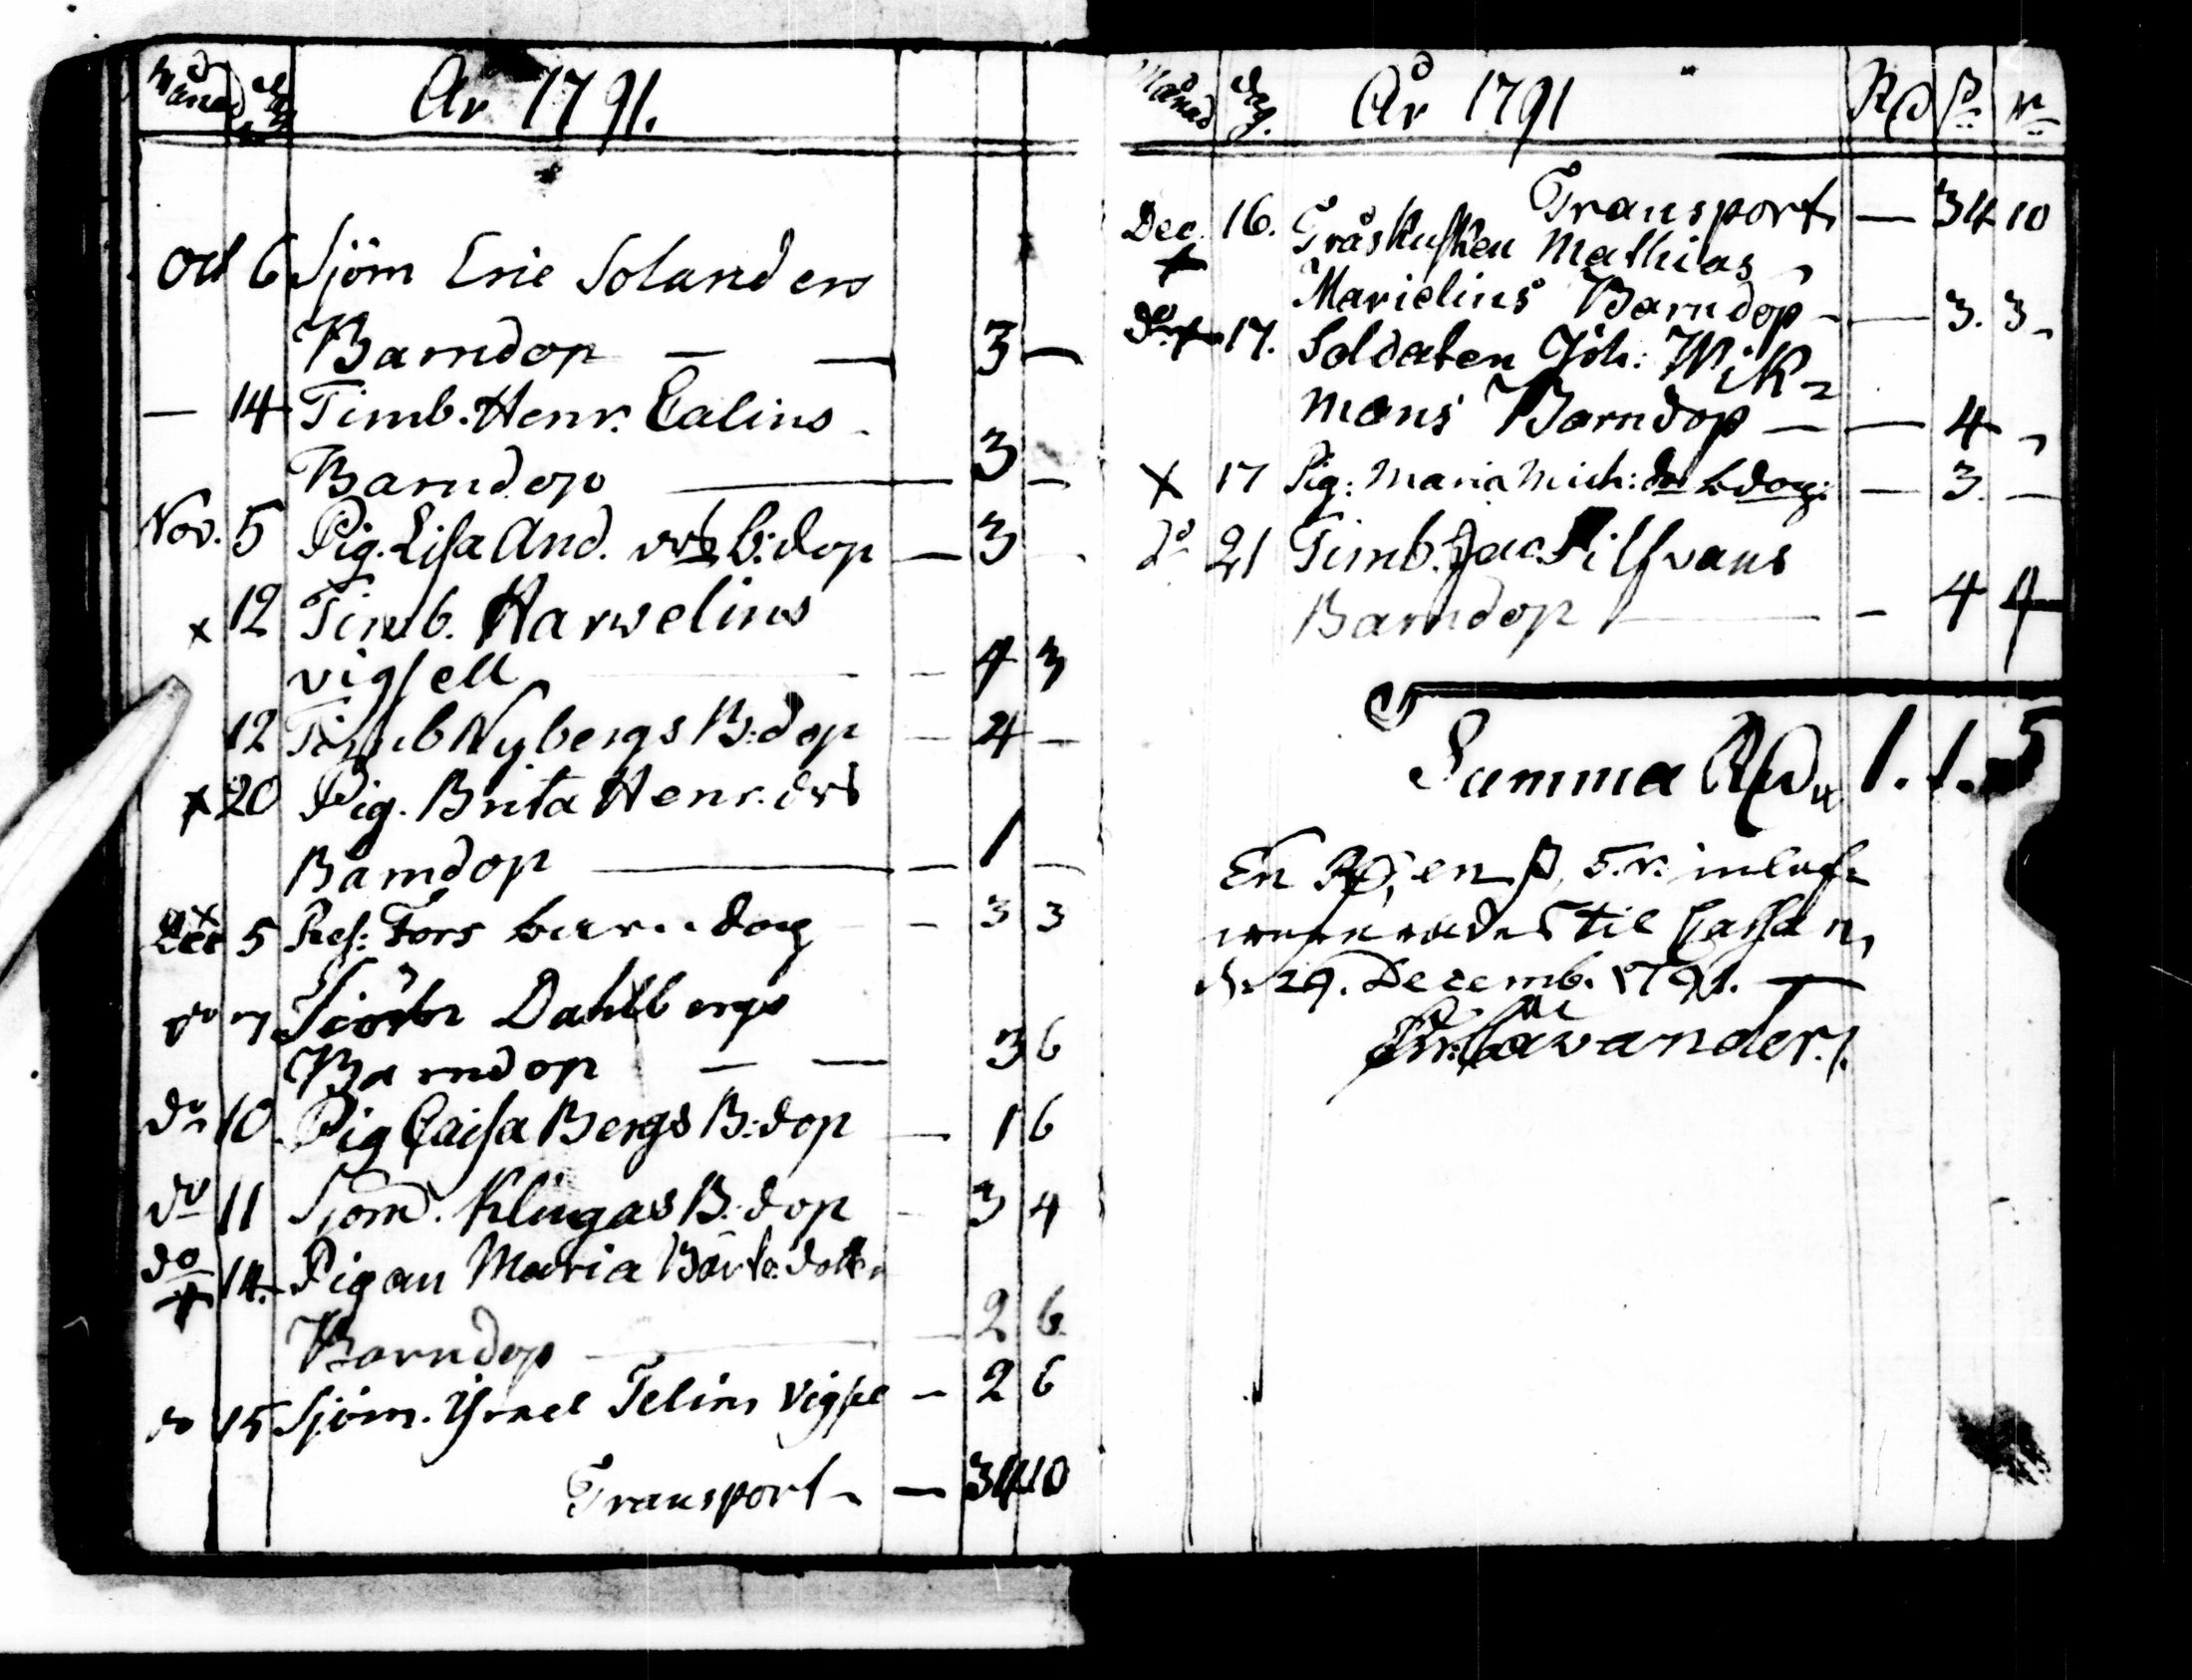 Månad Dag År 1791.
Oct 6 Sjöm Eric Solanders
Barndop — — 3 —
— 14 Timb. Henr. Calins
Barndop — 3 —
Nov. 5 Pig. Lisa And. drs B:dop — 3 —
x 12 Timb. Harwelins
vigsell — 4 3
12 Timb Nybergs B:dop — 4 —
x 20 Pig. Brita Henr. drs
Barndop — 1 —
x Dec 5 Ref: Fors barndop — 3 3
do 7 Dahlbergs
Barndop — — 3 6
do 10 Pig Caisa Bergs B:dop — 1 6
do 11 Sjom. Klingas B:dop — 3 4
do x 14. Pigan Maria dotter
Barndop — 2 6
do 15 Sjöm. Israel Telins Vigsel — 2 6
Transport — 34 10
Månad Dag. År 1791 Rd ß r
Transport — 34 10
Dec. x 16. Mathias
Marielins Barndop — 3. 3
do x 17. Soldaten Joh: Wik-
mans Barndop — 4 „
x 17 Pig: Maria Mich: drs bdop: — 3. —
do 21 Timb. Jac Silfvans
Barndop — 4 4
Summa Rd 1. 1. 5
En Rd, en ß, 5. r:
til Cassan,
d. 29. Decemb. 1791. —
Cavander.